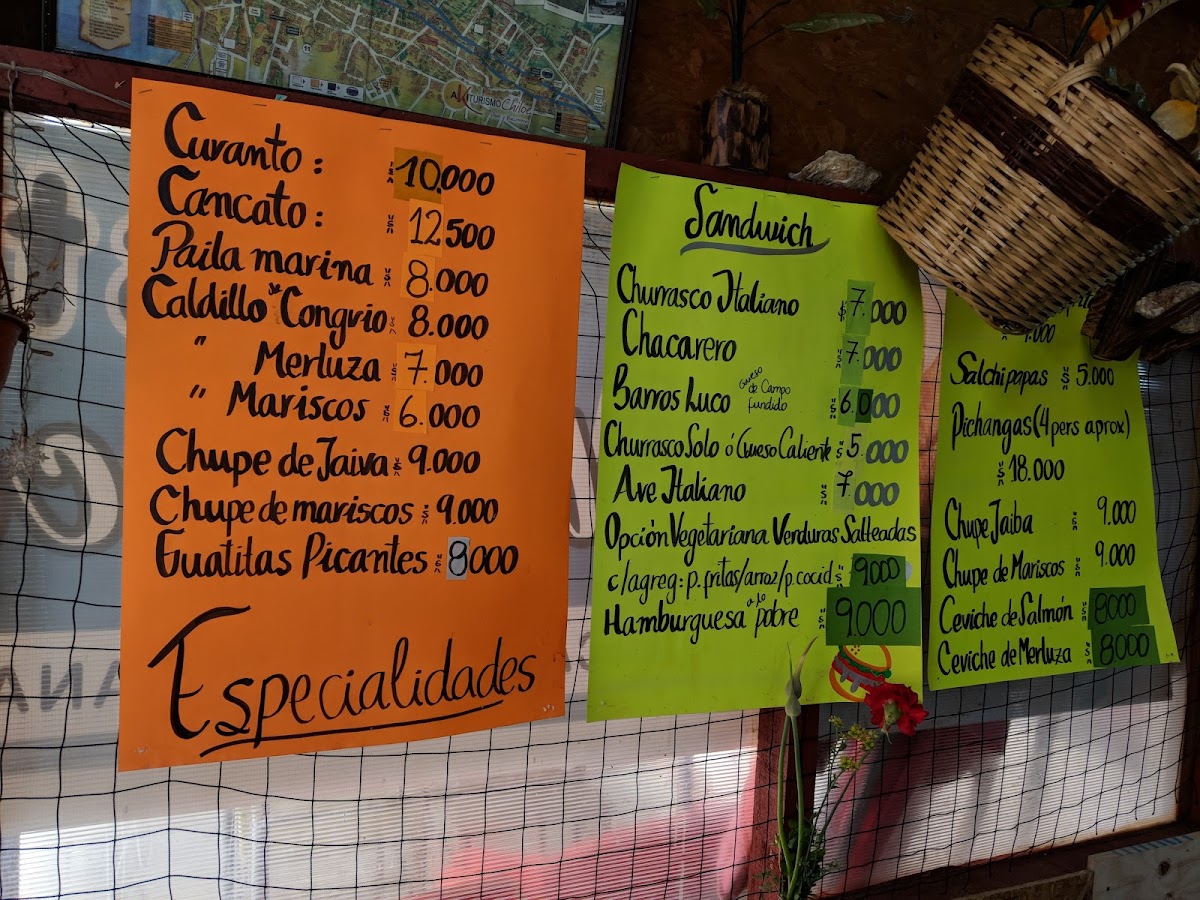 AKITURISMO Chiloé
Curanto: $10.000
Cancato: $12500
Paila marina $8.000
Caldillo de Congrio $8.000
" Merluza $7.000
" Mariscos $6.000
Chupe de Jaiva $9.000
Chupe de mariscos $9.000
Guatitas Picantes $8000
Especialidades
Sandwich
Churrasco Italiano $7.000
Chacarero $7.000
Barros Luco queso de Campo fundido $6.000
Churrasco Solo ó Queso Caliente $5.000
Ave Italiano $7.000
Opción Vegetariana Verduras Salteadas
c/agreg: p.fritas/arroz/p.cocid $9000
Hamburguesa a lo pobre $9.000
Salchipapas $5.000
Pichangas (4 pers aprox)
$18.000
Chupe Jaiba $9.000
Chupe de Mariscos $9.000
Ceviche de Salmón $8000
Ceviche de Merluza $8000